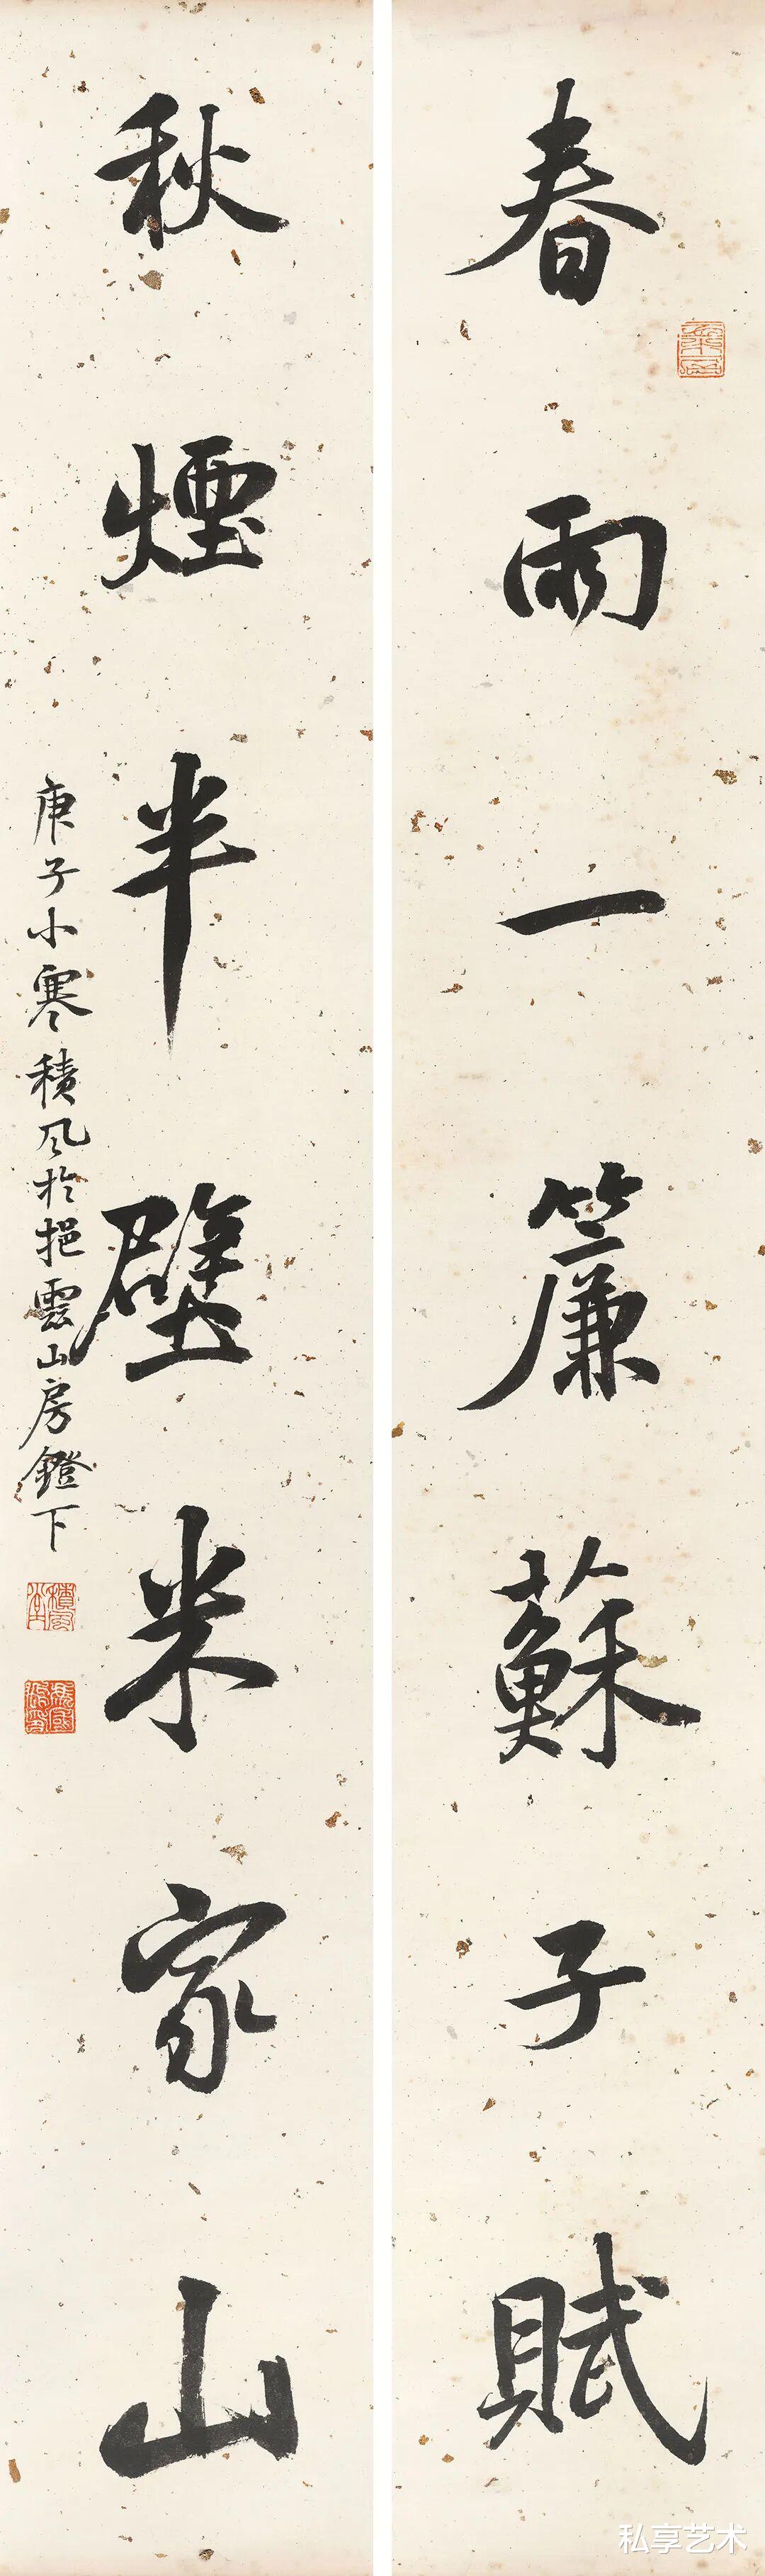 春雨一簾蘇子賦
秋煙半壁米家山
庚子小寒積風於挹雲山房鐙下
私享艺术